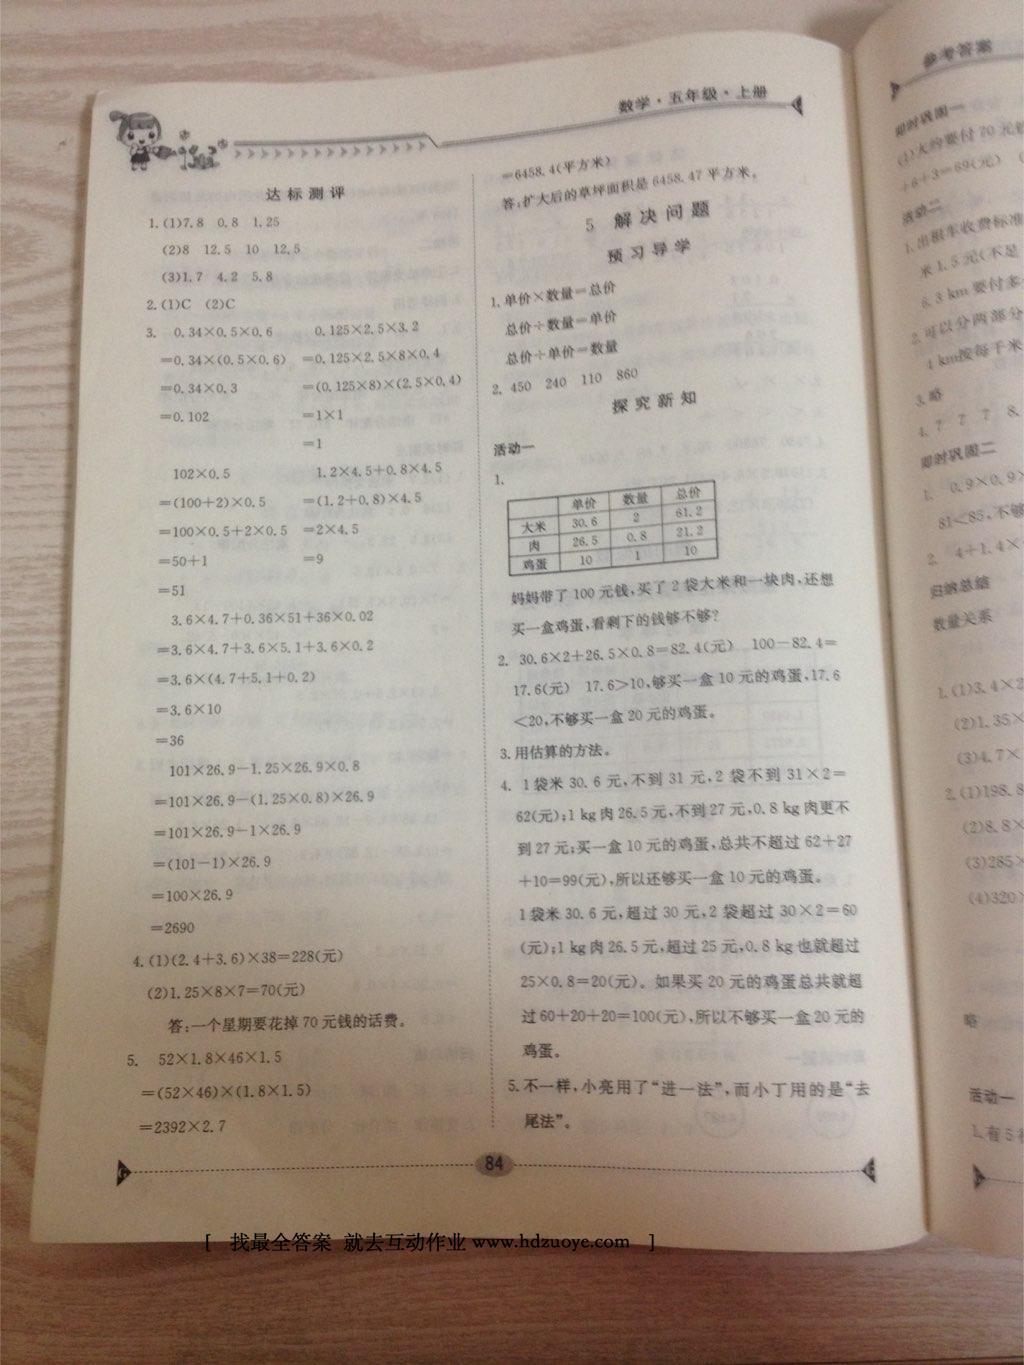 数学·五年级·上册
达标测评
1.(1)7.8 0.8 1.25
(2)8 12.5 10 12.5
(3)1.7 4.2 5.8
2.(1)C (2)C
3. 0.34×0.5×0.6 0.125×2.5×3.2
=0.34×(0.5×0.6) =0.125×2.5×8×0.4
=0.34×0.3 =(0.125×8)×(2.5×0.4)
=0.102 =1×1
=1
102×0.5 1.2×4.5+0.8×4.5
=(100+2)×0.5 =(1.2+0.8)×4.5
=100×0.5+2×0.5 =2×4.5
=50+1 =9
=51
3.6×4.7+0.36×51+36×0.02
=3.6×4.7+3.6×5.1+3.6×0.2
=3.6×(4.7+5.1+0.2)
=3.6×10
=36
101×26.9-1.25×26.9×0.8
=101×26.9-(1.25×0.8)×26.9
=101×26.9-1×26.9
=(101-1)×26.9
=100×26.9
=2690
4.(1)(2.4+3.6)×38=228(元)
(2)1.25×8×7=70(元)
答:一个星期要花掉70元钱的话费。
5. 52×1.8×46×1.5
=(52×46)×(1.8×1.5)
=2392×2.7
=6458.4(平方米)
答:扩大后的草坪面积是6458.47平方米。
5 解决问题
预习导学
1.单价×数量=总价
总价÷数量=单价
总价÷单价=数量
2. 450 240 110 860
探究新知
活动一
1.
单价 数量 总价
大米 30.6 2 61.2
肉 26.5 0.8 21.2
鸡蛋 10 1 10
妈妈带了100元钱,买了2袋大米和一块肉,还想
买一盒鸡蛋,看剩下的钱够不够?
2. 30.6×2+26.5×0.8=82.4(元) 100-82.4=
17.6(元) 17.6>10,够买一盒10元的鸡蛋,17.6
<20,不够买一盒20元的鸡蛋。
3.用估算的方法。
4. 1袋米30.6元,不到31元,2袋不到31×2=
62(元);1 kg肉26.5元,不到27元,0.8 kg肉更不
到27元;买一盒10元的鸡蛋,总共不超过62+27
+10=99(元),所以还够买一盒10元的鸡蛋。
1袋米30.6元,超过30元,2袋超过30×2=60
(元);1 kg肉26.5元,超过25元,0.8 kg也就超过
25×0.8=20(元)。如果买20元的鸡蛋总共就超
过60+20+20=100(元),所以不够买一盒20元的
鸡蛋。
5.不一样,小亮用了“进一法”,而小丁用的是“去
尾法”。
84
参考答案
即时巩固一
(1)大约要付70元钱
+6+3=69(元)
活动二
1.出租车收费标准
米1.5元(不足
6.3 km要付多
2.可以分两部分
4 km按每千米
3.略
4. 7 7 7 8.
即时巩固二
1. 0.9×0.9×
81<85,不够
2. 4+1.4×
归纳总结
数量关系
1.(1)3.4×2
(2)1.35×
(3)4.7×
2.(1)198.8
(2)8.8×
(3)285×
(4)320×
略
活动一
1.有5
[ 找最全答案 就去互动作业 www.hdzuoye.com ]